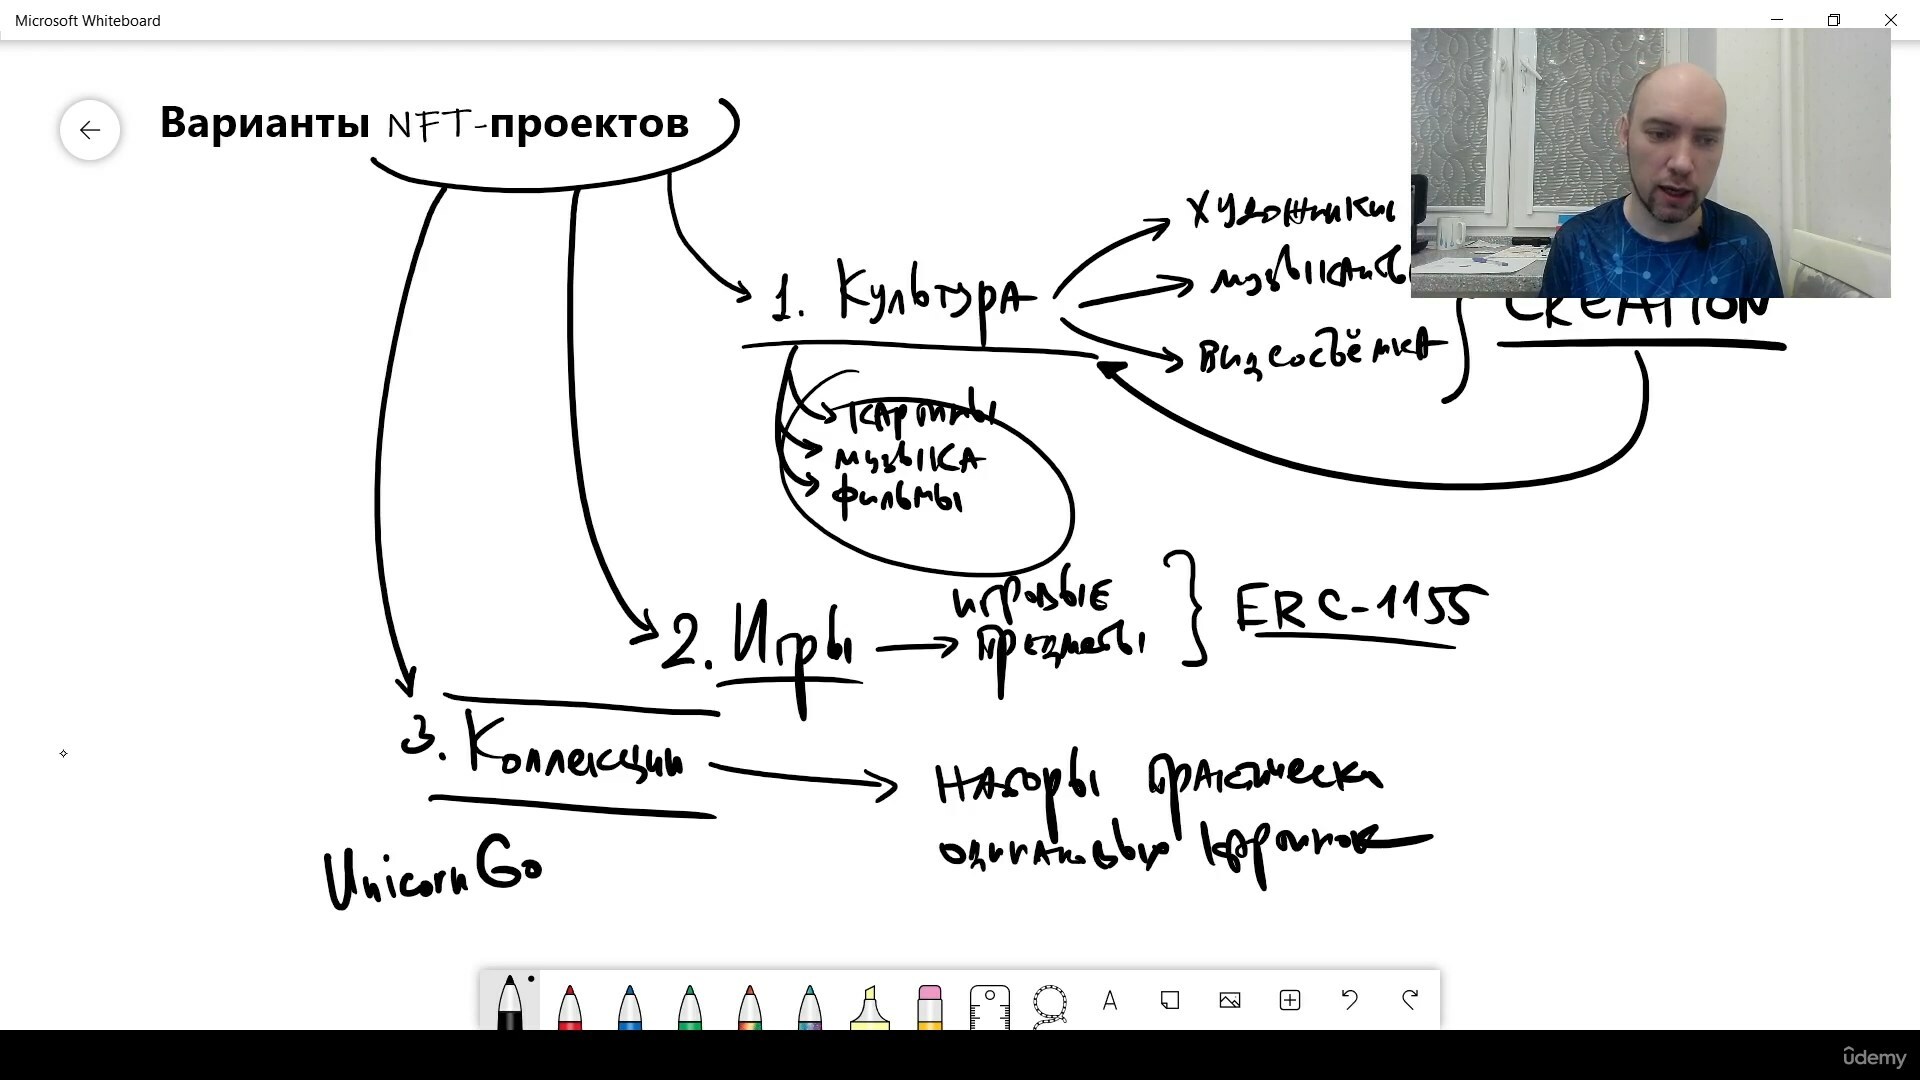 Microsoft Whiteboard
Варианты NFT-проектов
1. Культура
художники
музыканты
видеосъёмка
CREATION
картины
музыка
фильмы
2. Игры
игровые
предметы
ERC-1155
3. Коллекции
Наборы практически
одинаковых картинок
UnicornGo
A
ûdemy